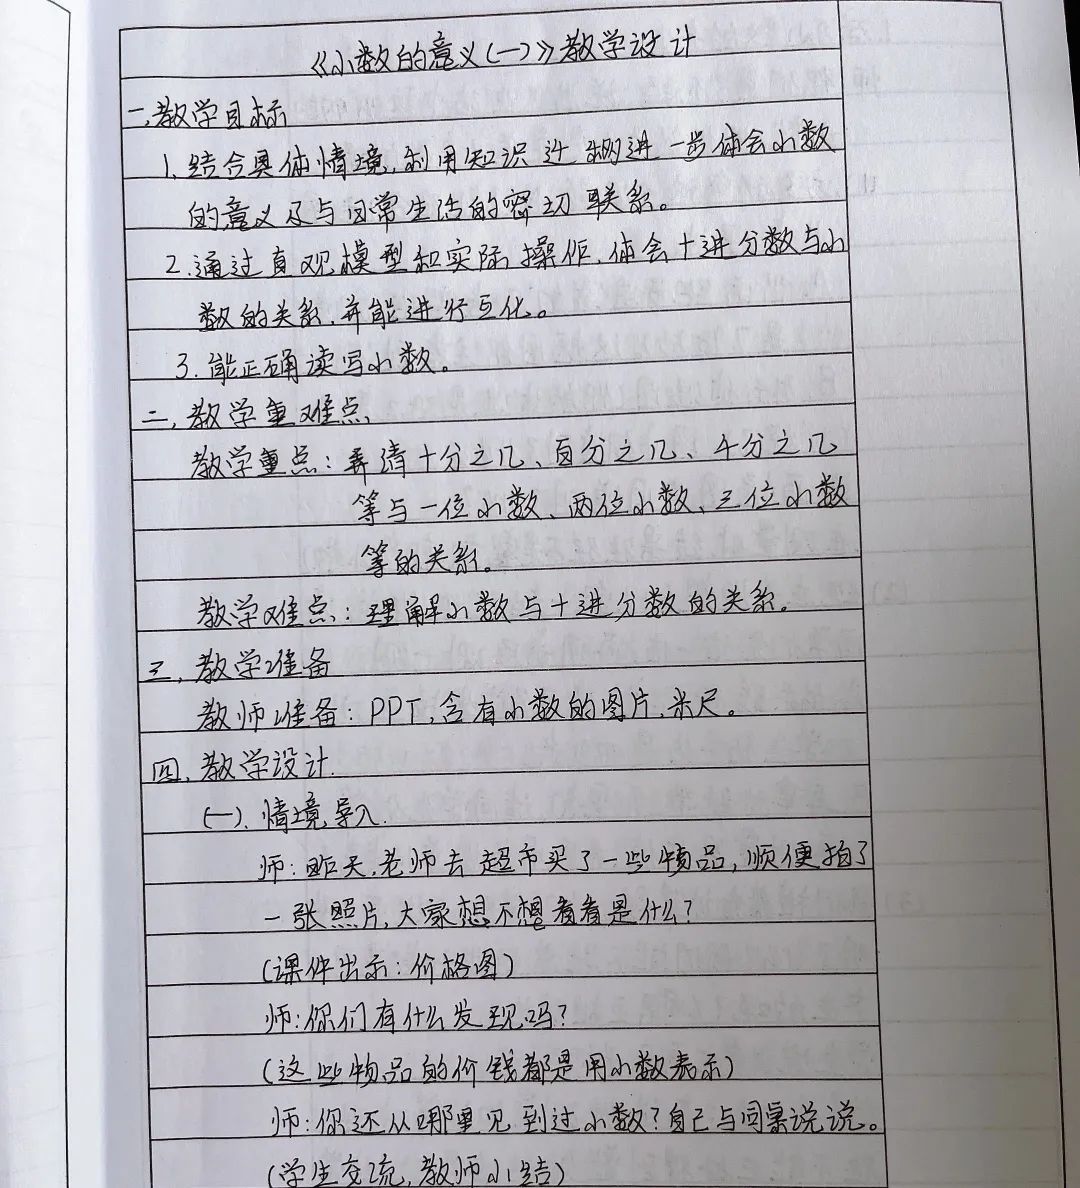 《小数的意义(一)》教学设计
一、教学目标
1. 结合具体情境，利用知识迁移进一步体会小数
的意义及与日常生活的密切联系。
2. 通过直观模型和实际操作，体会十进分数与小
数的关系，并能进行互化。
3. 能正确读写小数。
二、教学重难点
教学重点：弄清十分之几、百分之几、千分之几
等与一位小数、两位小数、三位小数
等的关系。
教学难点：理解小数与十进分数的关系。
三、教学准备
教师准备：PPT，含有小数的图片，米尺。
四、教学设计
(一). 情境导入.
师：昨天，老师去超市买了一些物品，顺便拍了
一张照片，大家想不想看看是什么？
(课件出示：价格图)
师：你们有什么发现吗？
(这些物品的价钱都是用小数表示)
师：你还从哪里见到过小数？自己与同桌说说。
(学生交流，教师小结)